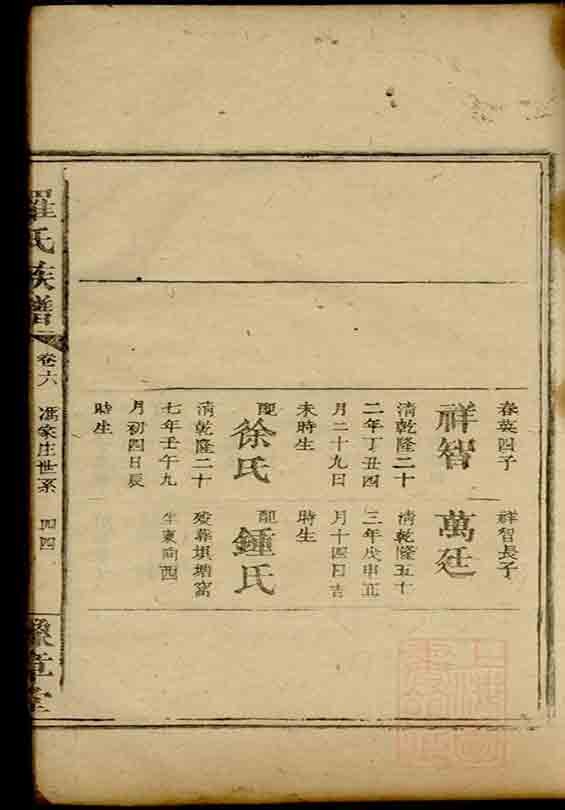 春英四子
祥智
清乾隆二十
二年丁丑四
月二十九日
未時生
配
徐氏
清乾隆二十
七年壬午九
月初四日辰
時生
祥智長子
萬廷
清乾隆五十
三年戊申正
月十四日吉
時生
配
鍾氏
歿葬垻塘窩
坐東向西
羅氏族譜
卷六
馮家庄世系
四四
豫章堂